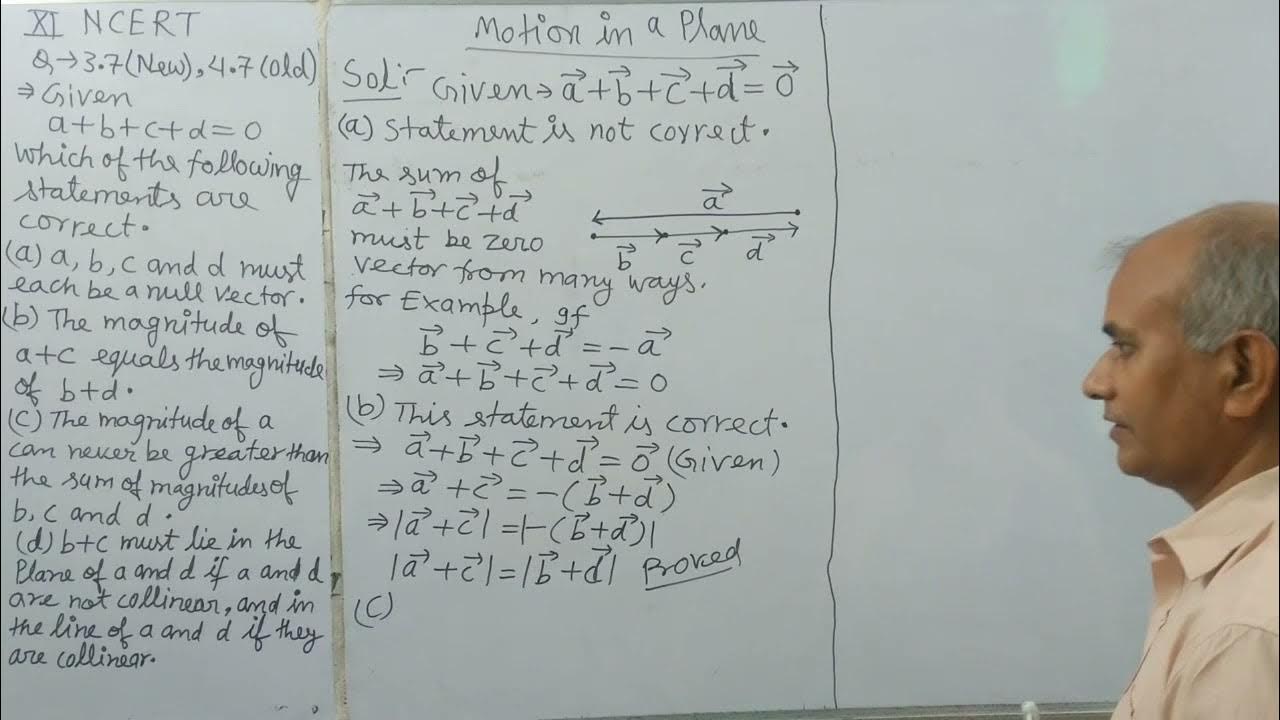 XI NCERT
Q → 3.7 (New), 4.7 (Old)
⇒ Given
a+b+c+d=0
which of the following
statements are
correct.
(a) a, b, c and d must
each be a null vector.
(b) The magnitude of
a+c equals the magnitude
of b+d.
(C) The magnitude of a
can never be greater than
the sum of magnitudes of
b, c and d.
(d) b+c must lie in the
Plane of a and d if a and d
are not collinear, and in
the line of a and d if they
are collinear.
Motion in a Plane
Sol:- Given → a⃗+b⃗+c⃗+d⃗=0⃗
(a) Statement is not correct.
The sum of
a⃗+b⃗+c⃗+d⃗
must be zero
vector from many ways.
for Example, If
b⃗+c⃗+d⃗=-a⃗
⇒ a⃗+b⃗+c⃗+d⃗=0
a⃗
b⃗ c⃗ d⃗
(b) This statement is correct.
⇒ a⃗+b⃗+c⃗+d⃗=0⃗ (Given)
⇒ a⃗+c⃗=-(b⃗+d⃗)
⇒ |a⃗+c⃗|=|-(b⃗+d⃗)|
|a⃗+c⃗|=|b⃗+d⃗| Proved
(C)